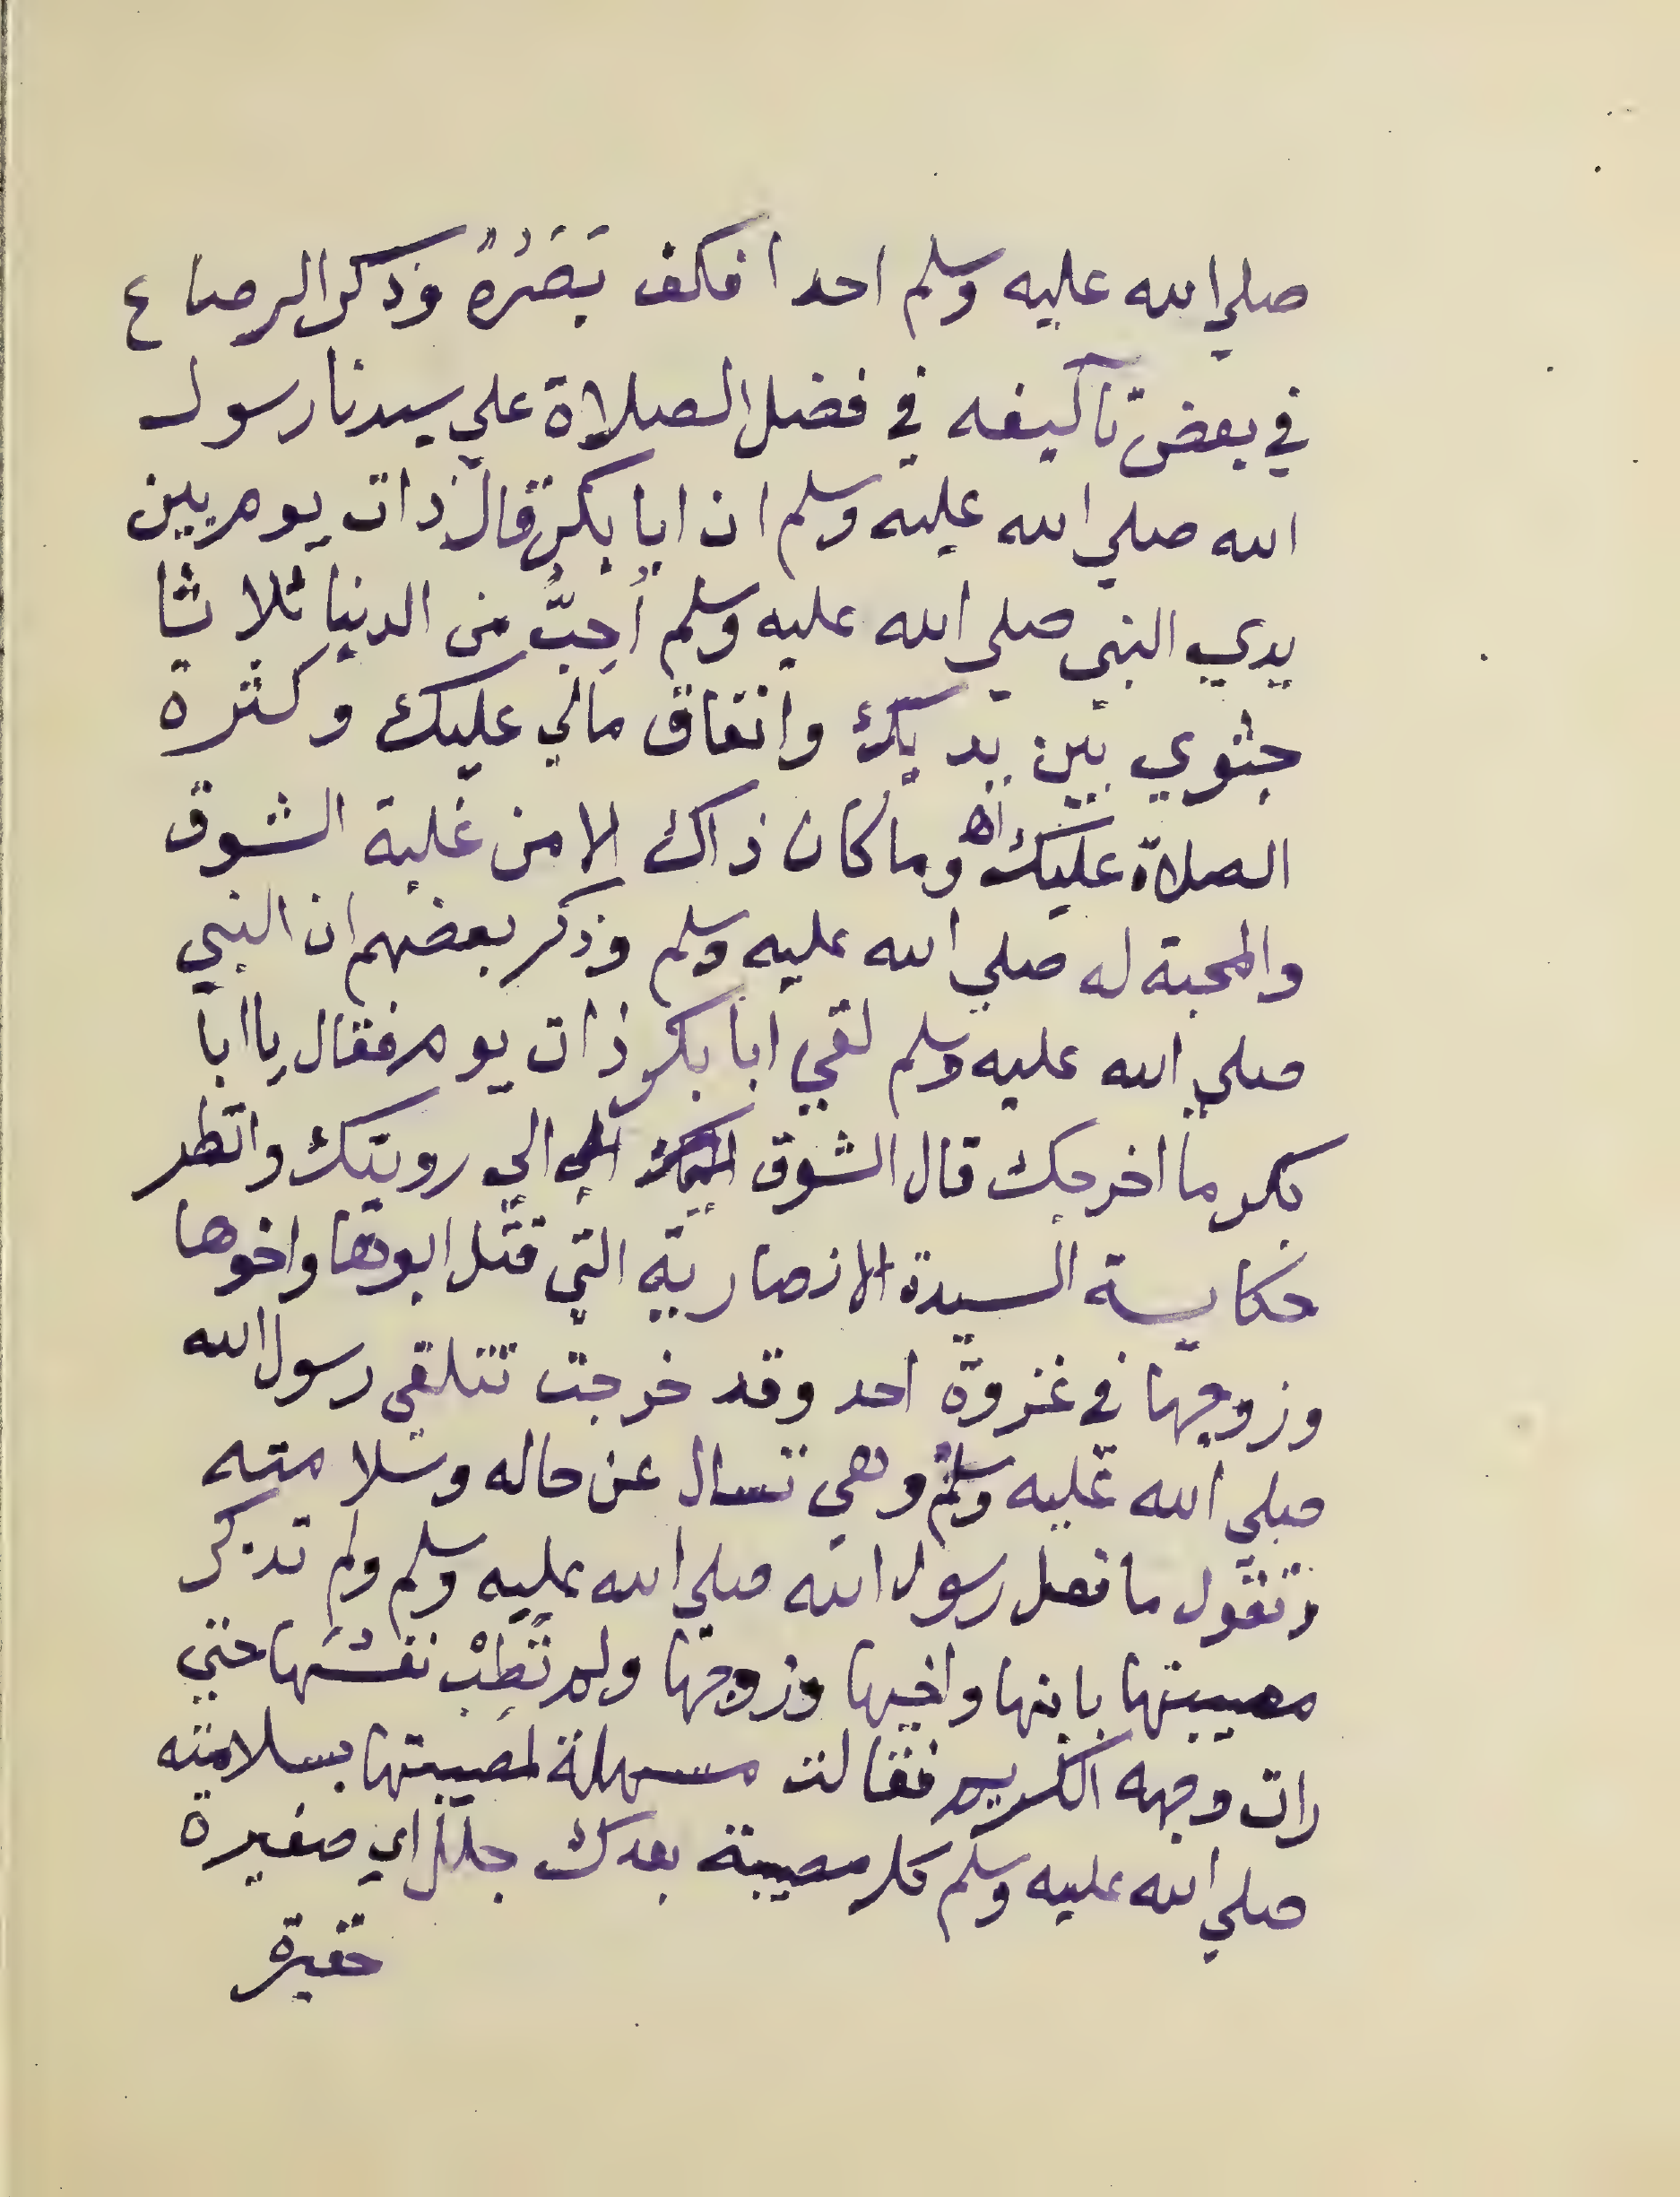 صلي الله عليه وسلم احدا فكف بَصَرُهُ وذكر الرصاع
في بعض تآليفه في فضل الصلاة علي سيدنا رسول
الله صلي الله عليه وسلم ان ابا بكر قال ذات يوم بين
يدي النبي صلي الله عليه وسلم أُحِبُّ من الدنيا ثلاثا
جثوي بين يديك وانفاق مالي عليك وكثرة
الصلاة عليك اه وما كان ذاك الا من غلبة الشوق
والمحبة له صلي الله عليه وسلم وذكر بعضهم ان النبي
صلي الله عليه وسلم لقي ابا بكر ذات يوم فقال يا ابا
بكر ما اخرجك قال الشوق الي رويتك وانظر
حكاية السيدة الانصارية التي قتل ابوها واخوها
وزوجها في غزوة احد وقد خرجت تتلقي رسول الله
صلي الله عليه وسلم وهي تسال عن حاله وسلامته
وتقول ما فعل رسول الله صلي الله عليه وسلم ولم تذكر
مصيبتها بابنها واخيها وزوجها ولم تَطِبْ نفسُها حتي
رات وجهه الكريم فقالت مسهلة لمصيبتها بسلامته
صلي الله عليه وسلم كل مصيبة بعدك جلل اي صغيرة
حقيرة